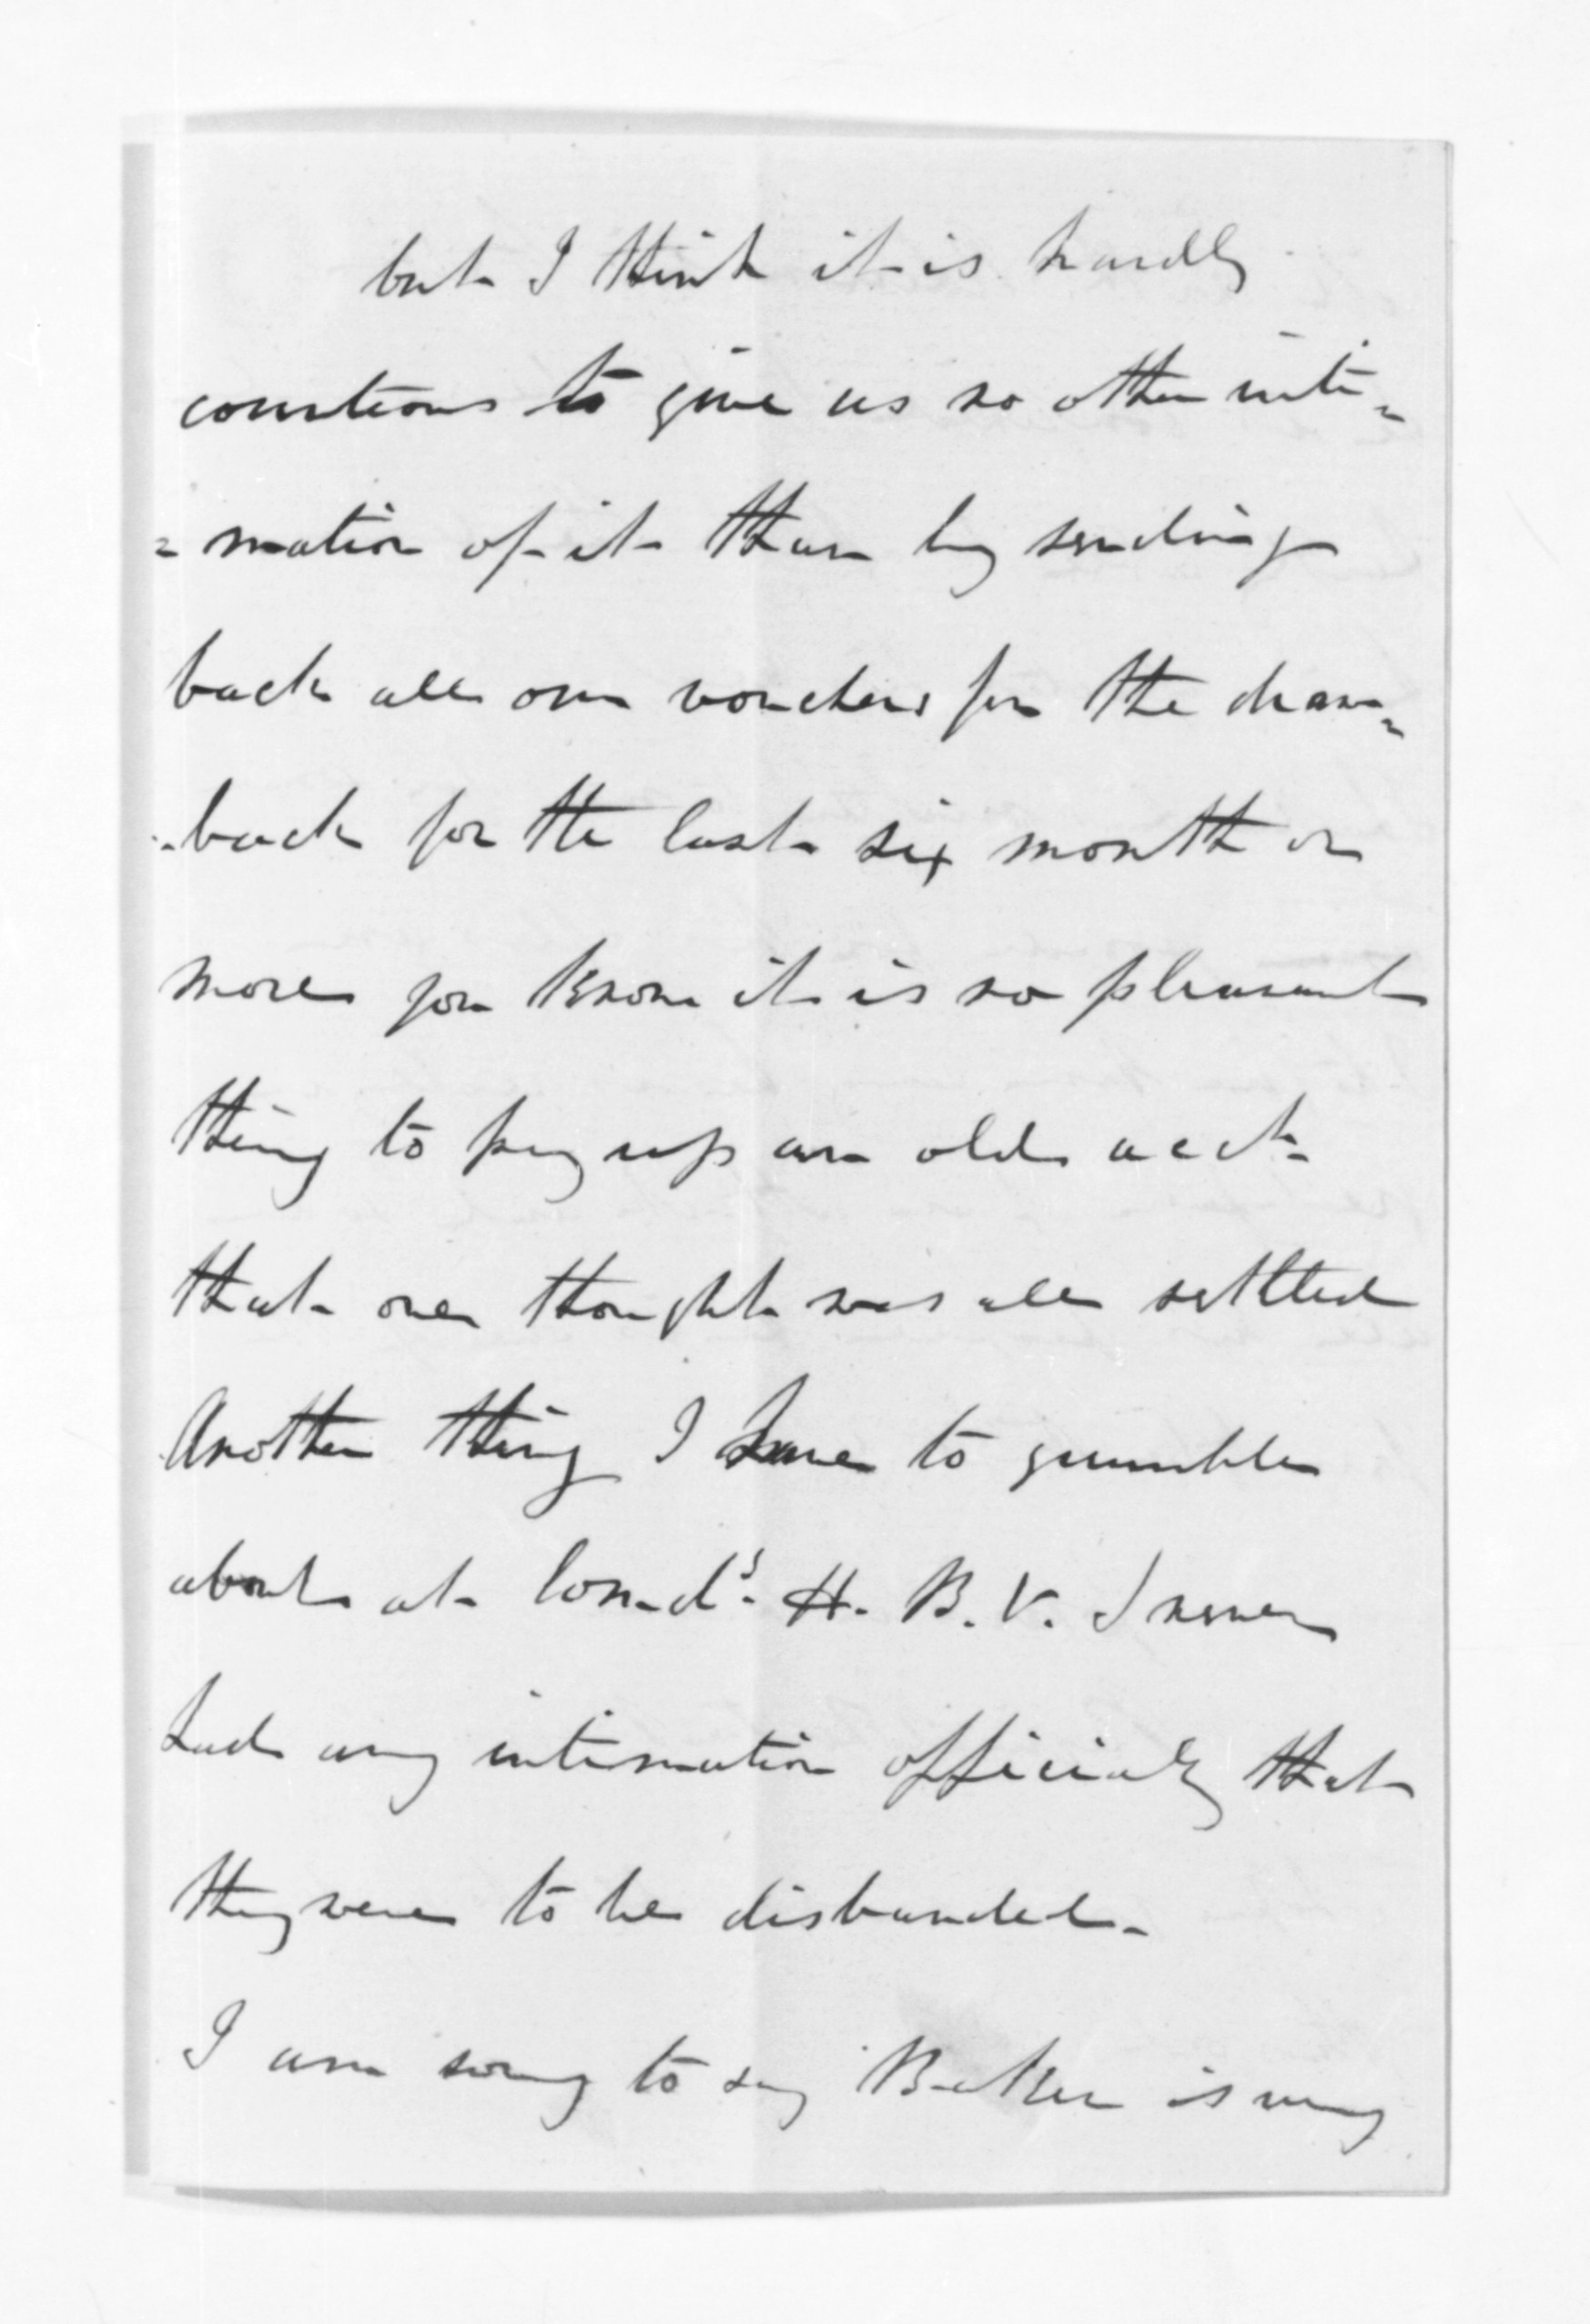 but I think it is hardly
courteous to give us no other inti=
=mation of it than by sending
back all our vouchers for the draw=
-back for the last six month or
more you know it is no pleasant
thing to pay up an old acct.
that one thought was all settled
Another thing I have to grumble
about at H. B. V. I never
had any intimation officialy that
they were to be disbanded.
I am sorry to say Baker is very